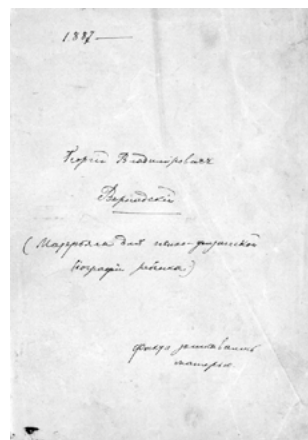 1887
Георгій Владиміровичъ
Вернадскій
(Матерьялъ для психо-физической
біографіи ребенка)
матерью